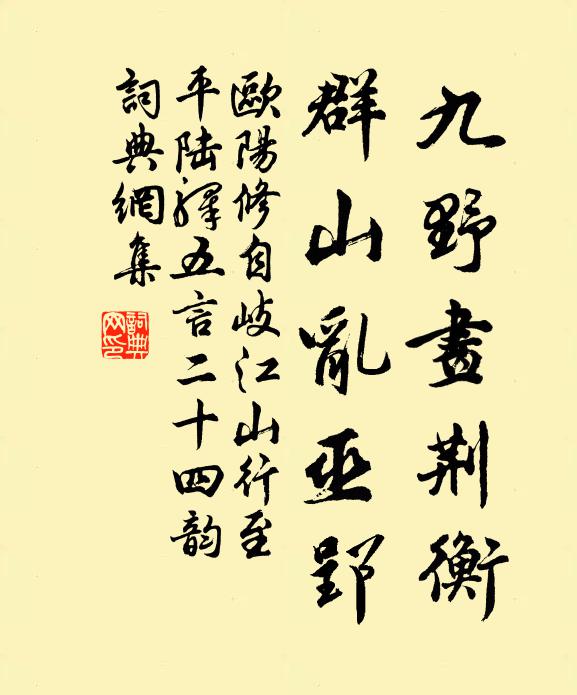 九野畫荆衡
群山亂巫郢
歐陽修自岐江山行至
平陆驿五言二十四韵
詞典網集
詞典网印